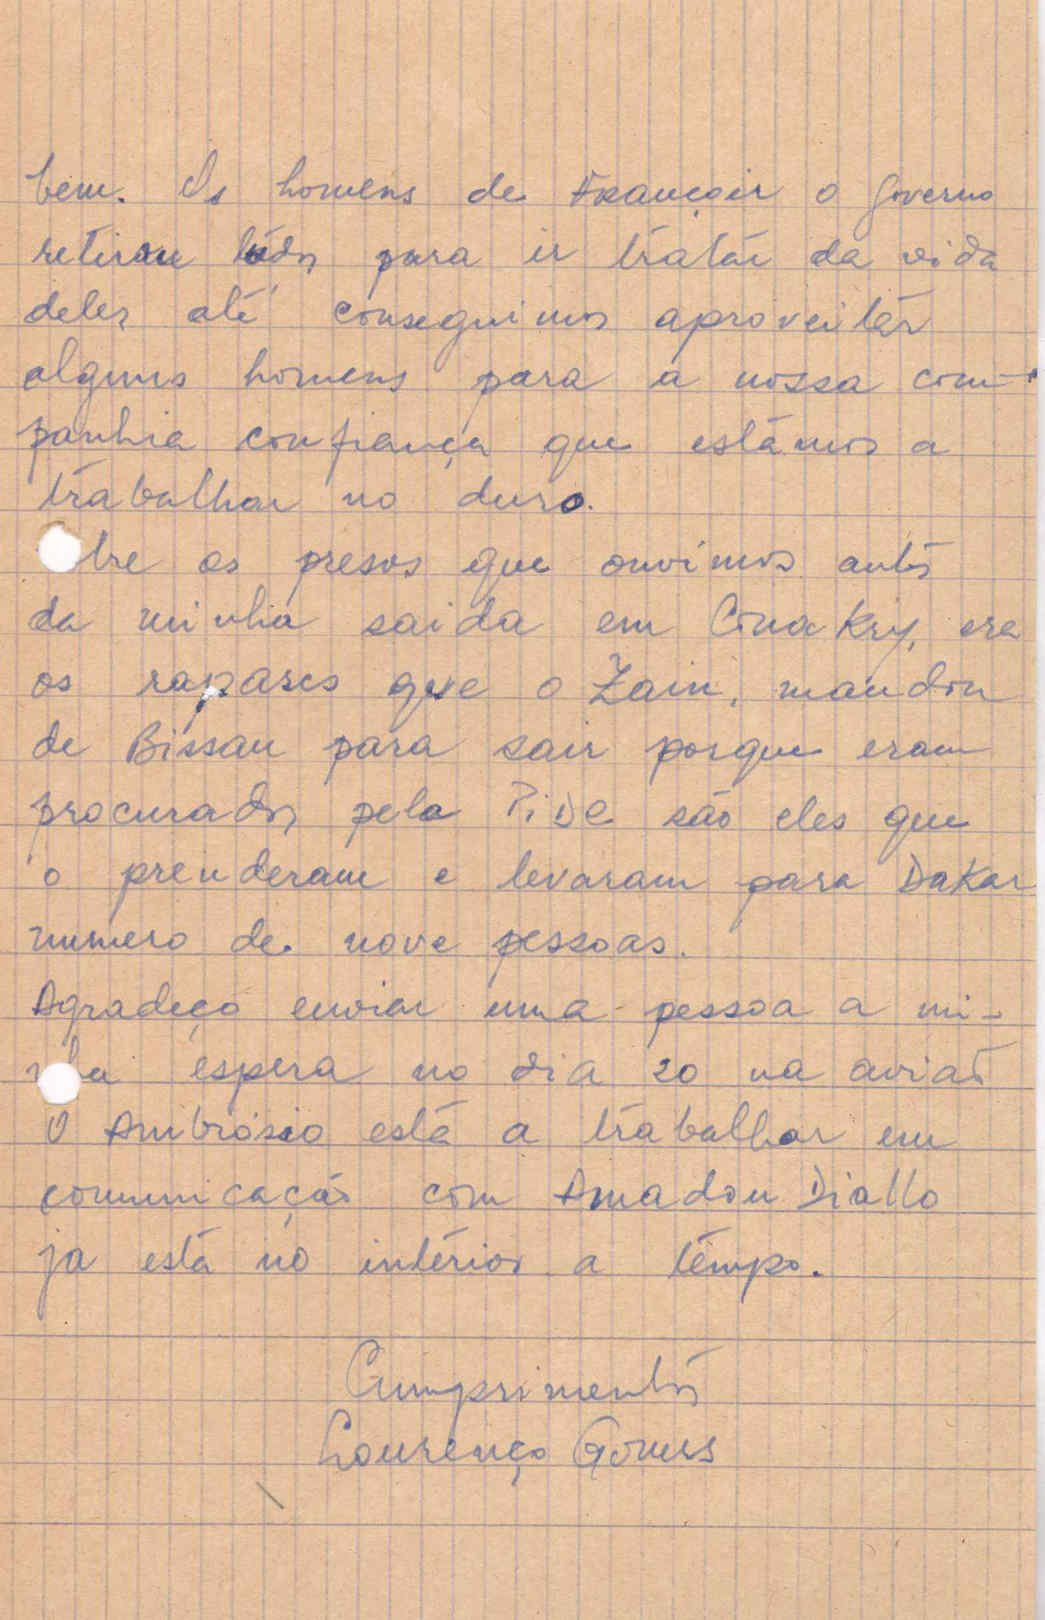 bem. Os homens de Françoir o Governo
retirou todos para ir tratár da vida
deles até conseguimos aproveitár
alguns homens para a nossa com-
panhia confiança que estámos a
trabalhar no duro.
bre os presos que ouvimos antes
da minha saida em Conakry, era
os rapases que o Zain, mandou
de Bissau para sair porque eram
procurados pela PiDe são eles que
o prenderam e levaram para Dakar
numero de nove pessoas.
Agradeço enviar uma pessoa a mi-
nha espera no dia 20 na aviaō
O Ambrósio está a trabalhar em
comunicação com Amadou Diallo
ja está no intérior a tempo.
Cumprimentos
Lourenço Gomes